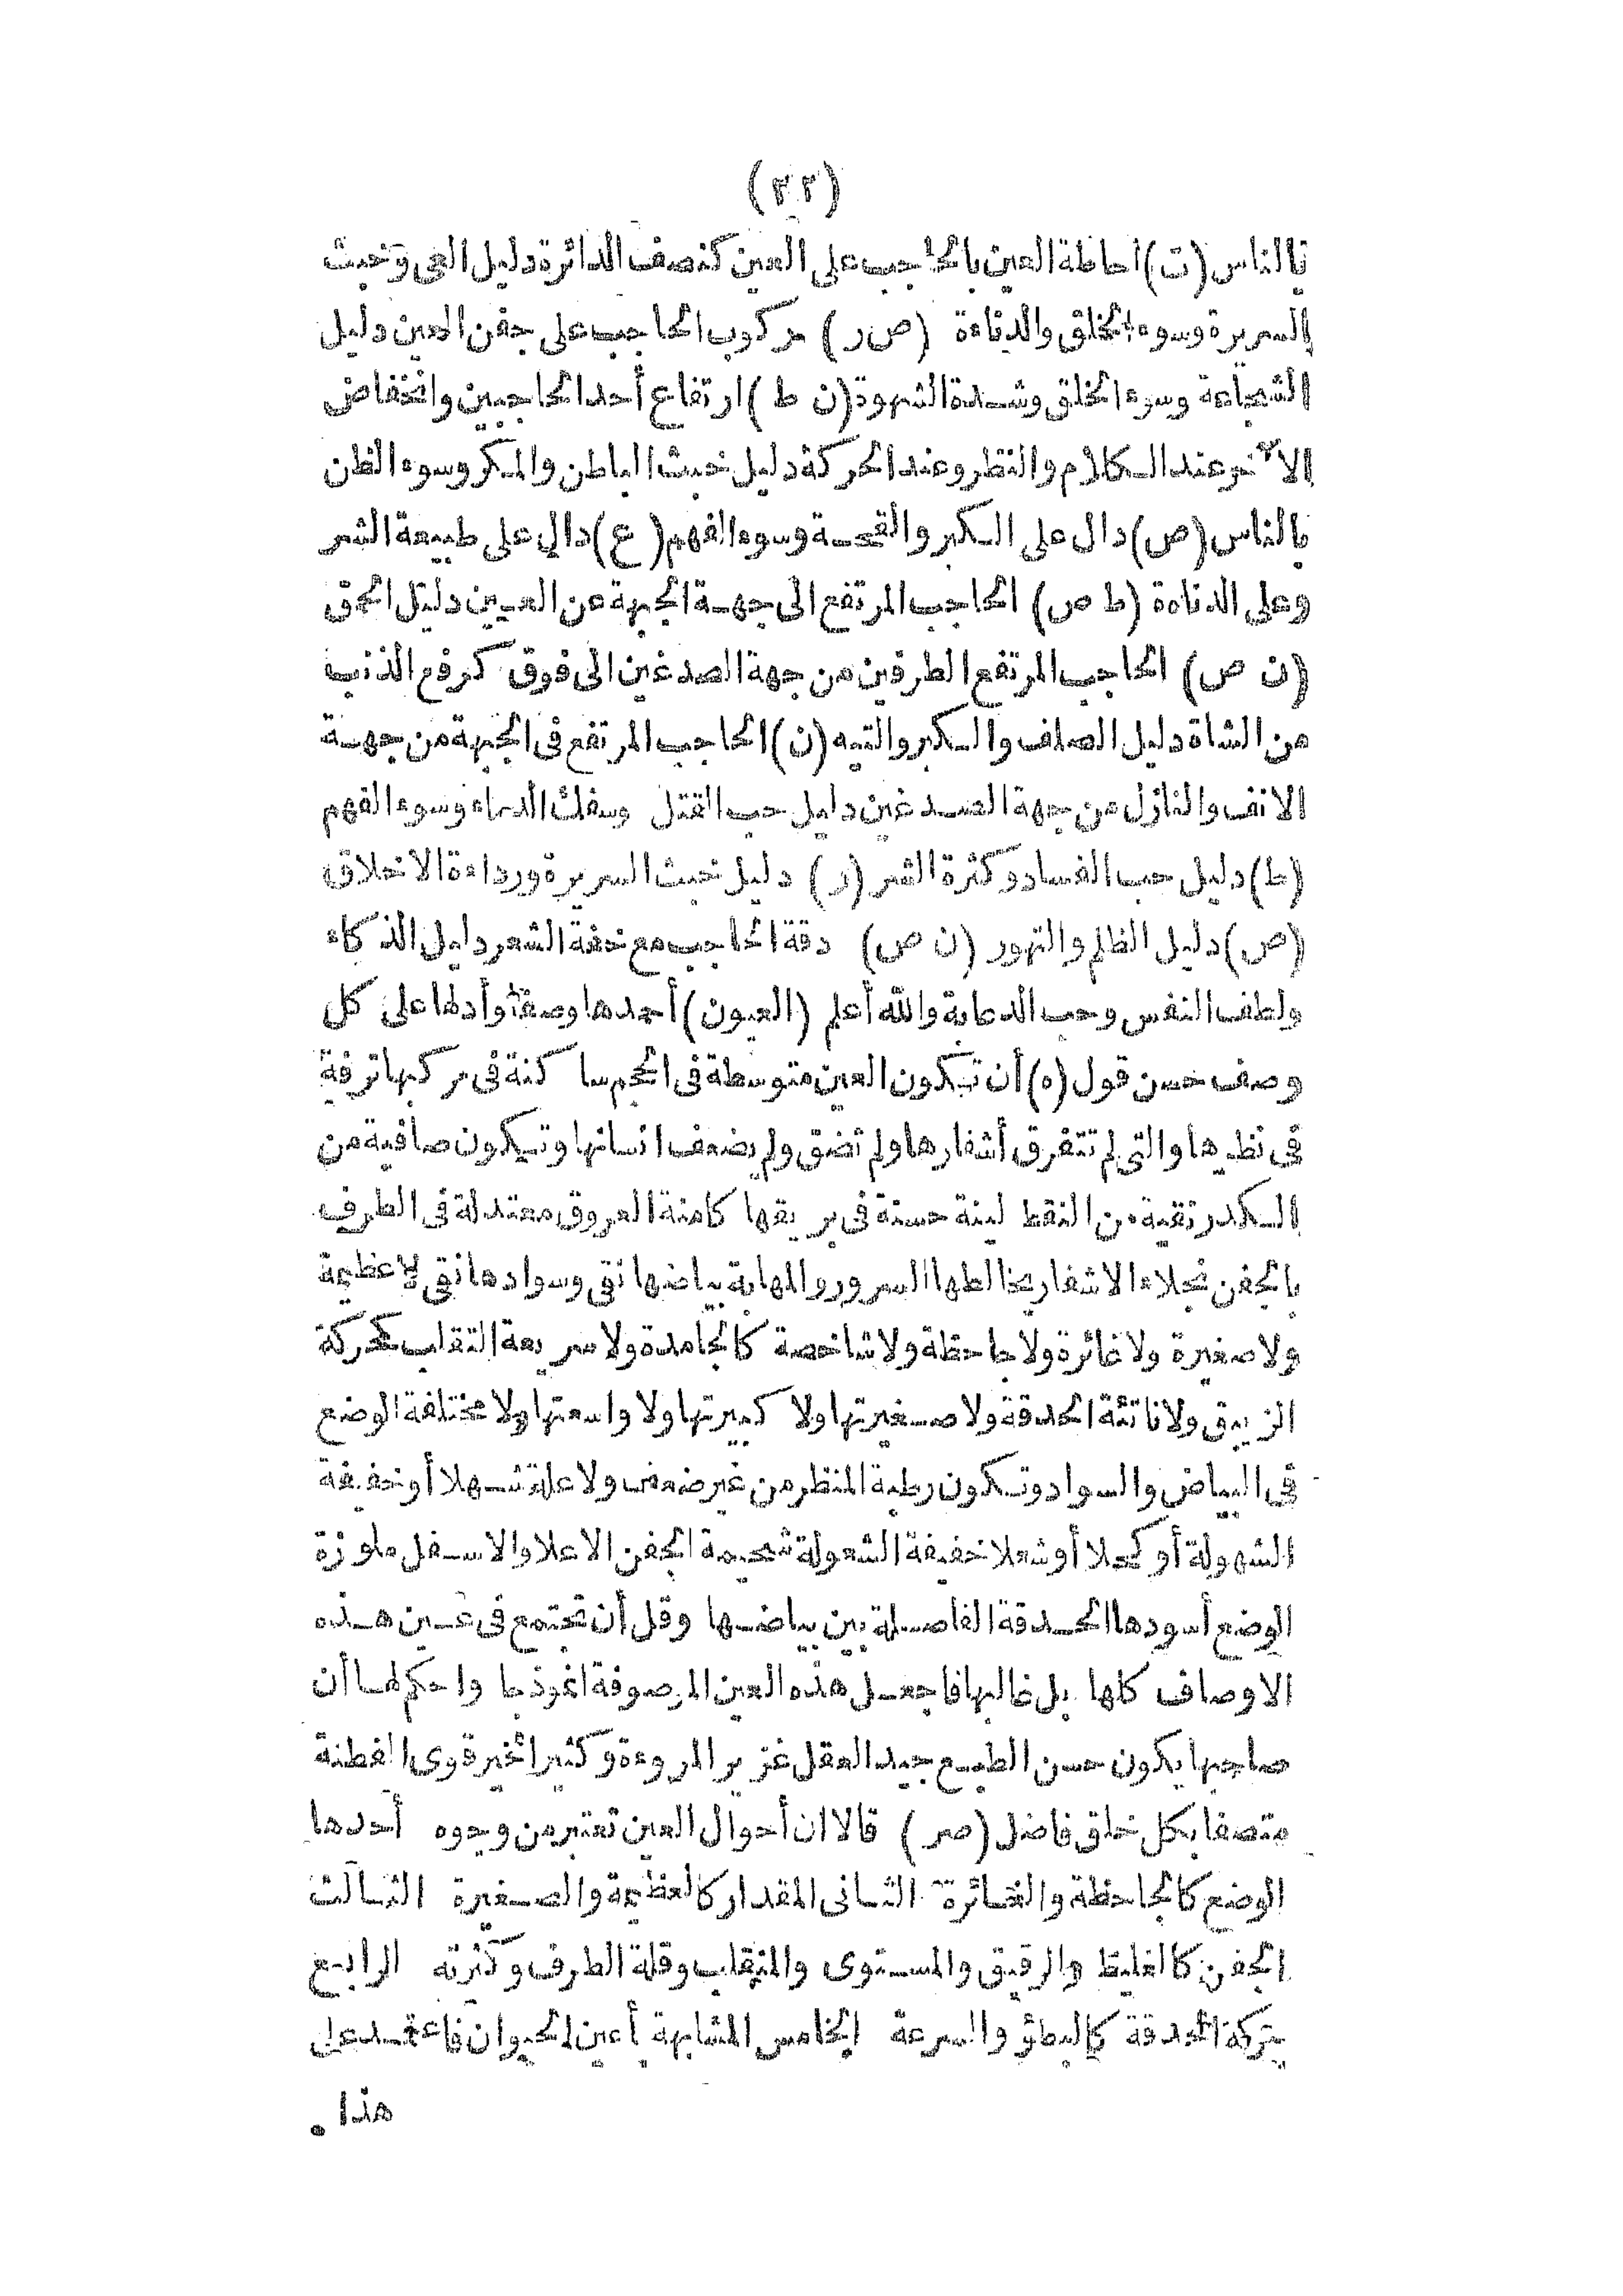 (٢٢)
بالناس (ت) احاطة العين بالحاجب على العين كنصف الدائرة دليل العى وخبث
السريرة وسوء الخلق والدناءة (ص ر) مركوب الحاجب على جفن العين دليل
الشجاعة وسوء الخلق وشدة الشهوة (ن ط) ارتفاع أحد الحاجبين وانخفاض
الآخر عند الكلام والنظر وعند الحركة دليل خبث الباطن والمكر وسوء الظن
بالناس (ص) دال على الكبر والقحة وسوء الفهم (ع) دال على طبيعة الشر
وعلى الدناءة (ط ص) الحاجب المرتفع الى جهة الجبهة عن العين دليل الحمق
(ن ص) الحاجب المرتفع الطرفين من جهة الصدغين الى فوق كرفع الذنب
من الشاة دليل الصلف والكبر والتيه (ن) الحاجب المرتفع فى الجبهة من جهة
الانف والنازل من جهة الصدغين دليل حب القتل وسفك الدماء وسوء الفهم
(ط) دليل حب الفساد وكثرة الشر (ر) دليل خبث السريرة ورداءة الاخلاق
(ص) دليل الظلم والتهور (ن ص) دقة الحاجب مع خفة الشعر دليل الذكاء
ولطف النفس وحب الدعابة والله أعلم (العيون) أحمدها وصفا وأدلها على كل
وصف حسن قول (ه) أن تكون العين متوسطة فى الحجم ساكنة فى مركبها ترفة
فى نظرها والتى لم تتفرق أشفارها ولم تضق ولم يضعف انسانها وتكون صافية من
الكدر نقية من النقط لينة حسنة فى بريقها كامنة العروق معتدلة فى الطرف
بالجفن نجلاء الاشفار يخالطها السرور والمهابة بياضها نقى وسوادها نقى لا عظيمة
ولا صغيرة ولا غائرة ولا جاحظة ولا شاخصة كالجامدة ولا سريعة التقلب كحركة
الزيبق ولا ناتئة الحدقة ولا صغيرتها ولا كبيرتها ولا واسعتها ولا مختلفة الوضع
فى البياض والسواد وتكون رطبة المنظر من غير ضعف ولا علة شهلا أو خفيفة
الشهولة أو كحلا أو شعلا خفيفة الشعولة شحيمة الجفن الاعلا والاسفل ملوزة
الوضع أسودها الحدقة الفاصلة بين بياضها وقل أن تجتمع فى عين هذه
الاوصاف كلها بل غالبها فاجعل هذه العين الموصوفة انموذجا واحكم لها أن
صاحبها يكون حسن الطبع جيد العقل غزير المروءة وكثير الخير قوى الفطنة
متصفا بكل خلق فاضل (ص ر) قالا ان أحوال العين تعتبر من وجوه أحدها
الوضع كالجاحظة والغائرة الثانى المقدار كالعظيمة والصغيرة الثالث
الجفن كالغليظ والرقيق والمستوى والمنقلب وقلة الطرف وكثرته الرابع
حركة الحدقة كالبطؤ والسرعة الخامس المشابهة أعين الحيوان فاعتمد على
هذا